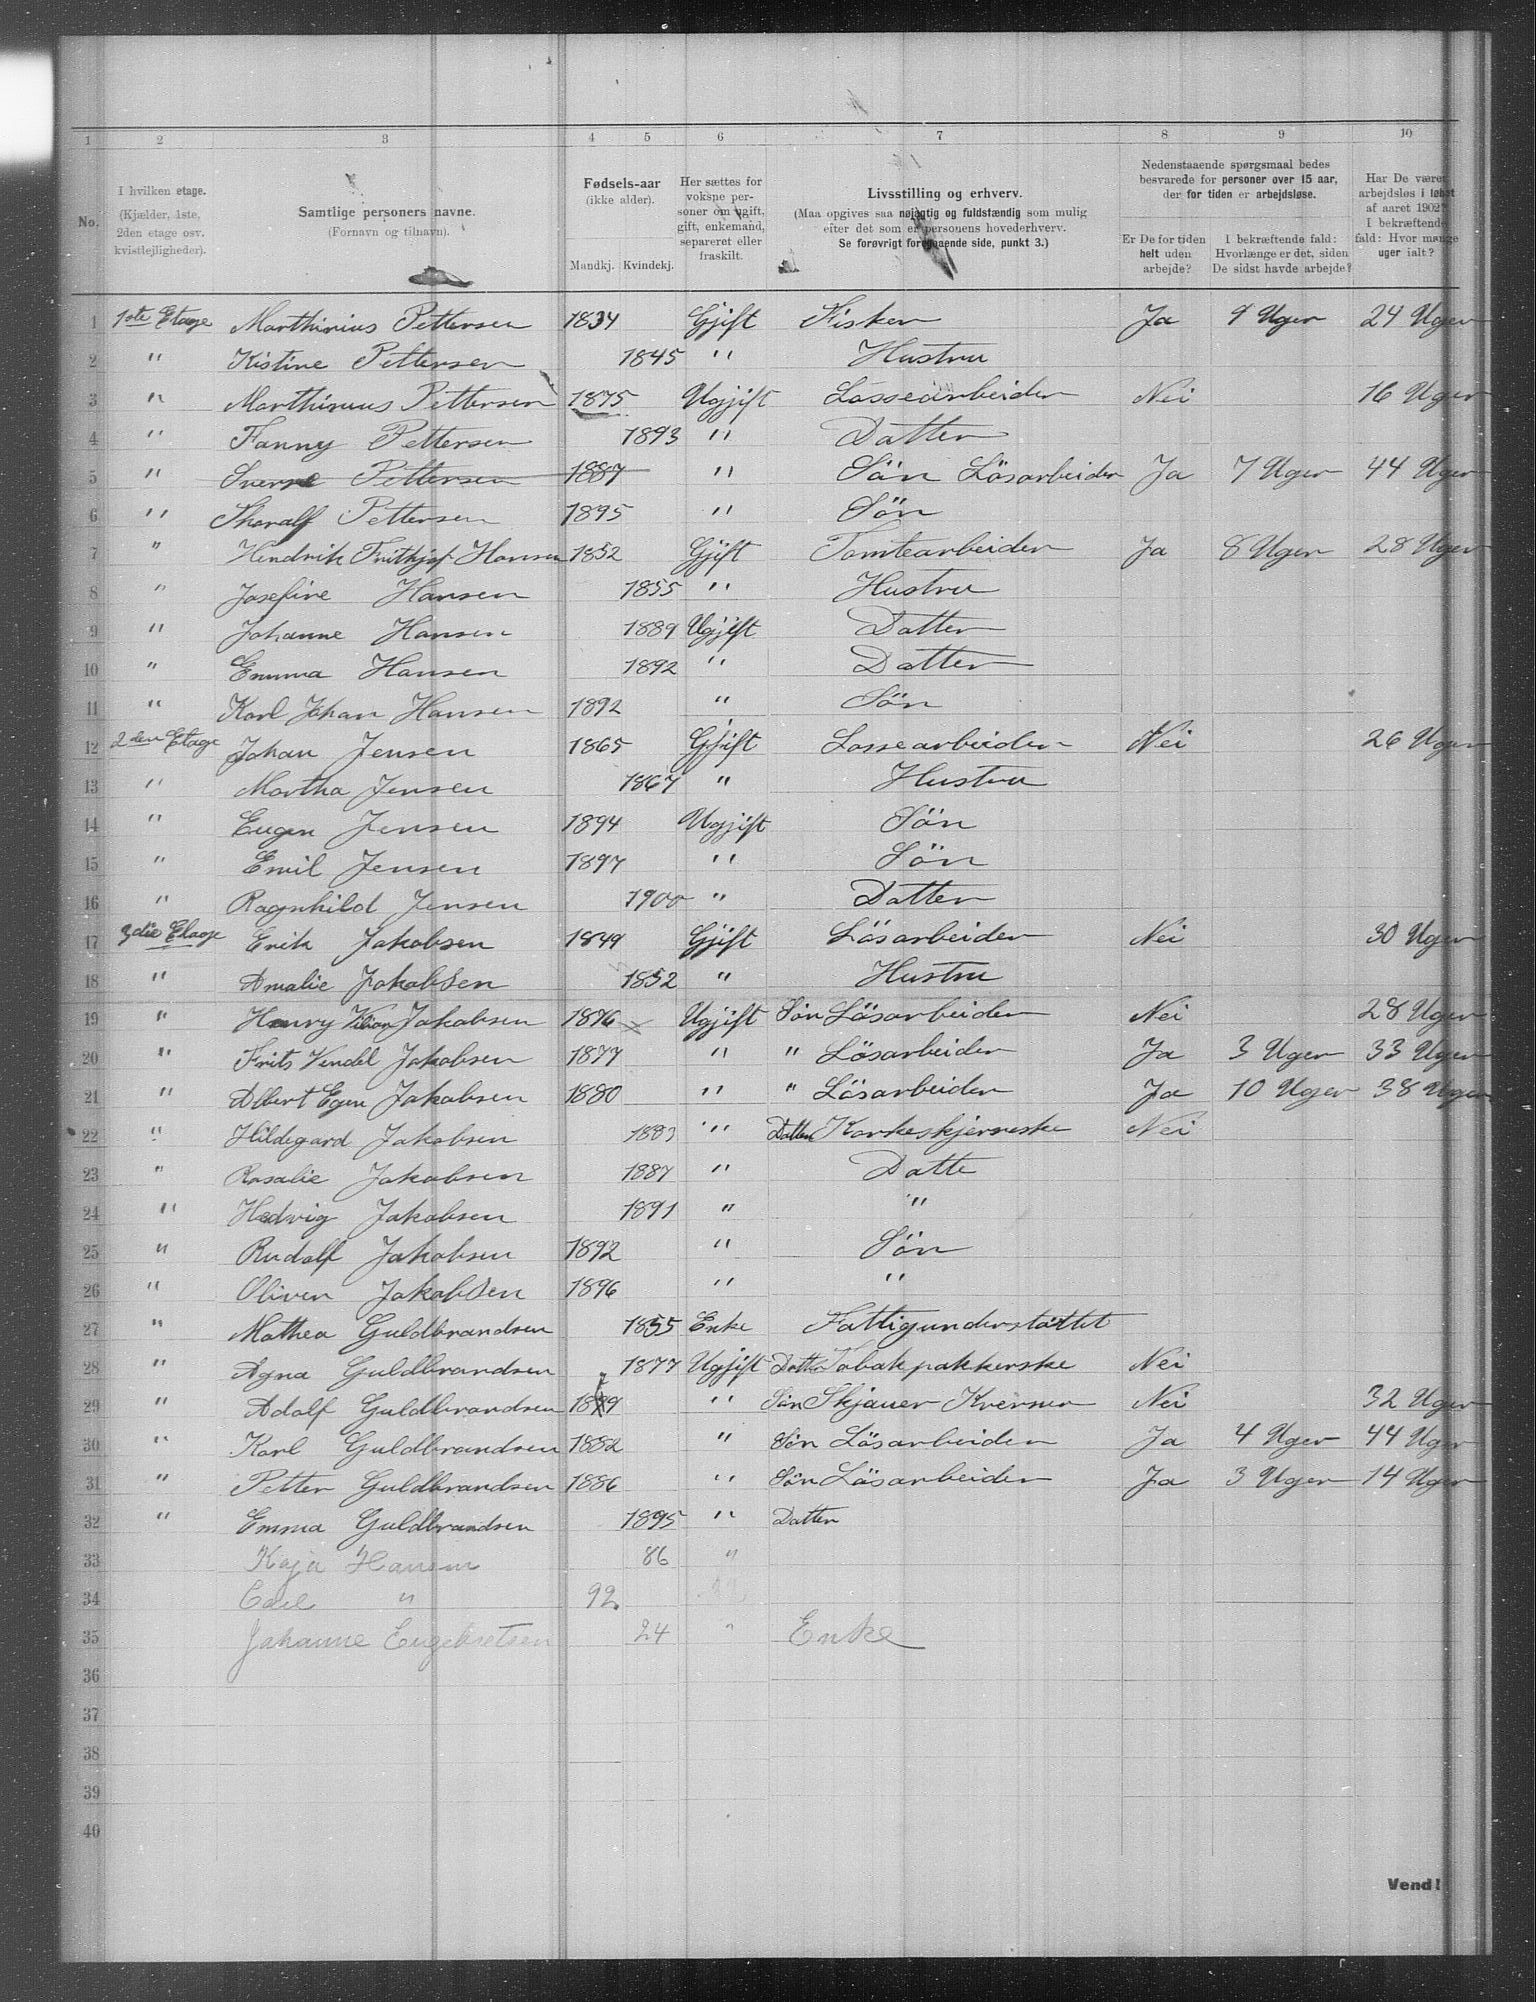 1 2 3 4 5 6 7 8 9 10
No.
I hvilken etage. (Kjælder, 1ste, 2den etage osv. kvistlejligheder).
Samtlige personers navne. (Fornavn og tilnavn).
Fødsels-aar (ikke alder).
Mandkj. Kvindekj.
Her sættes for voksne personer om ugift, gift, enkemand, separeret eller fraskilt.
Livsstilling og erhverv.
(Maa opgives saa nøjagtig og fuldstændig som mulig efter det som er personens hovederhverv. Se forøvrigt foregaaende side, punkt 3.)
Nedenstaaende spørgsmaal bedes besvarede for personer over 15 aar, der for tiden er arbejdsløse.
Er De for tiden helt uden arbejde?
I bekræftende fald: Hvorlænge er det, siden De sidst havde arbejde?
Har De været arbejdsløs i løbet af aaret 1902? I bekræftende fald: Hvor mange uger ialt?
1 1ste Etage Marthinius Pettersen 1834 Gjift Fisker Ja 9 Uger 24 Uger
2 " Kistine Pettersen 1845 " Hustru
3 " Marthinius Pettersen 1875 Ugjift Lossearbeider Nei 16 Uger
4 " Fanny Pettersen 1893 " Datter
5 " Sverre Pettersen 1887 " Søn Løsarbeider Ja 7 Uger 44 Uger
6 " Thoralf Pettersen 1895 " Søn
7 " Hendrik Frithjof Hansen 1852 Gjift Tomtearbeider Ja 8 Uger 28 Uger
8 " Josefine Hansen 1855 " Hustru
9 " Johanne Hansen 1889 Ugjift Datter
10 " Emma Hansen 1892 " Datter
11 " Karl Johan Hansen 1892 " Søn
12 2den Etage Johan Jensen 1865 Gjift Lossearbeider Nei 26 Uger
13 " Martha Jensen 1867 " Hustru
14 " Eugen Jensen 1894 Ugjift Søn
15 " Emil Jensen 1897 " Søn
16 " Ragnhild Jensen 1900 " Datter
17 3die Etage Erik Jakobsen 1849 Gjift Løsarbeider Nei 30 Uger
18 " Amalie Jakobsen 1852 " Hustru
19 " Henry Jakobsen 1876 Ugjift Søn Løsarbeider Nei 28 Uger
20 " Frits Vendel Jakobsen 1877 " " Løsarbeider Ja 3 Uger 33 Uger
21 " Albert Egen Jakobsen 1880 " " Løsarbeider Ja 10 Uger 38 Uger
22 " Hildegard Jakobsen 1883 " Datter Korkeskjerreske Nei
23 " Rosalie Jakobsen 1887 " Datte
24 " Hedvig Jakobsen 1891 " "
25 " Rudolf Jakobsen 1892 " Søn
26 " Oliver Jakobsen 1896 " "
27 " Mathea Guldbrandsen 1855 Enke Fattigunderstøttet
28 " Agna Guldbrandsen 1877 Ugjift Datter Tobakpakkerske Nei
29 " Adolf Guldbrandsen 1879 " Søn Skjauer Kverner Nei 32 Uger
30 " Karl Guldbrandsen 1882 " Søn Løsarbeider Ja 4 Uger 44 Uger
31 " Petter Guldbrandsen 1886 " Søn Løsarbeider Ja 3 Uger 14 Uger
32 " Emma Guldbrandsen 1895 " Datter
33 Kaja Hansen 86 "
34 Carl " 92
35 Johanne Engebretsen 24 " Enke
36
37
38
39
40
Vend!